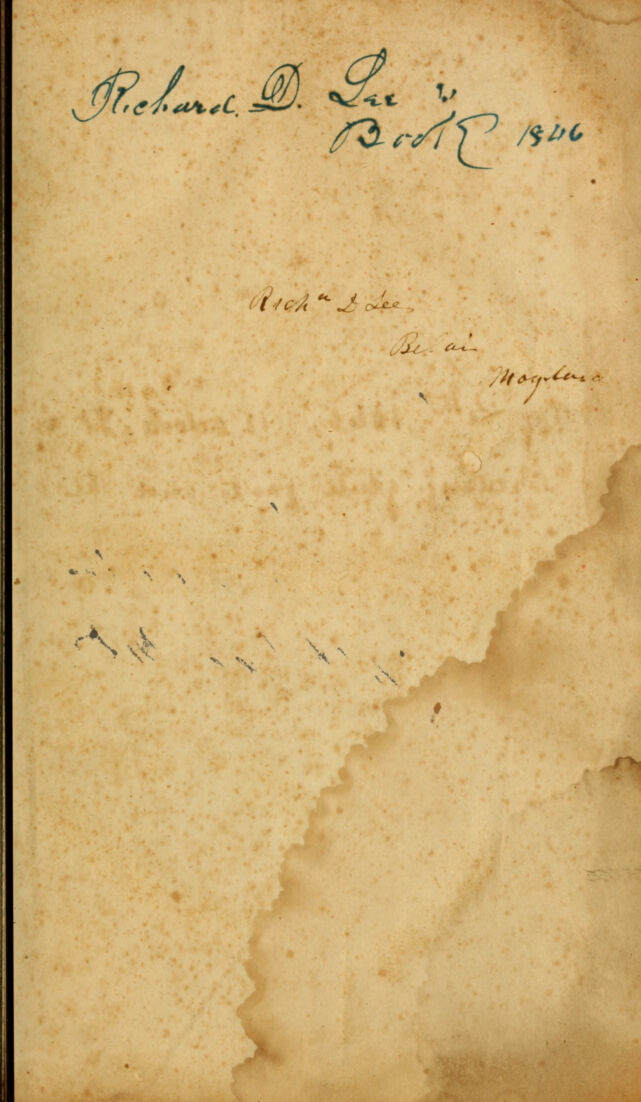 Richard. D. Lee's
Book 1846
Rich^d D Lee
Bel air
Maryland